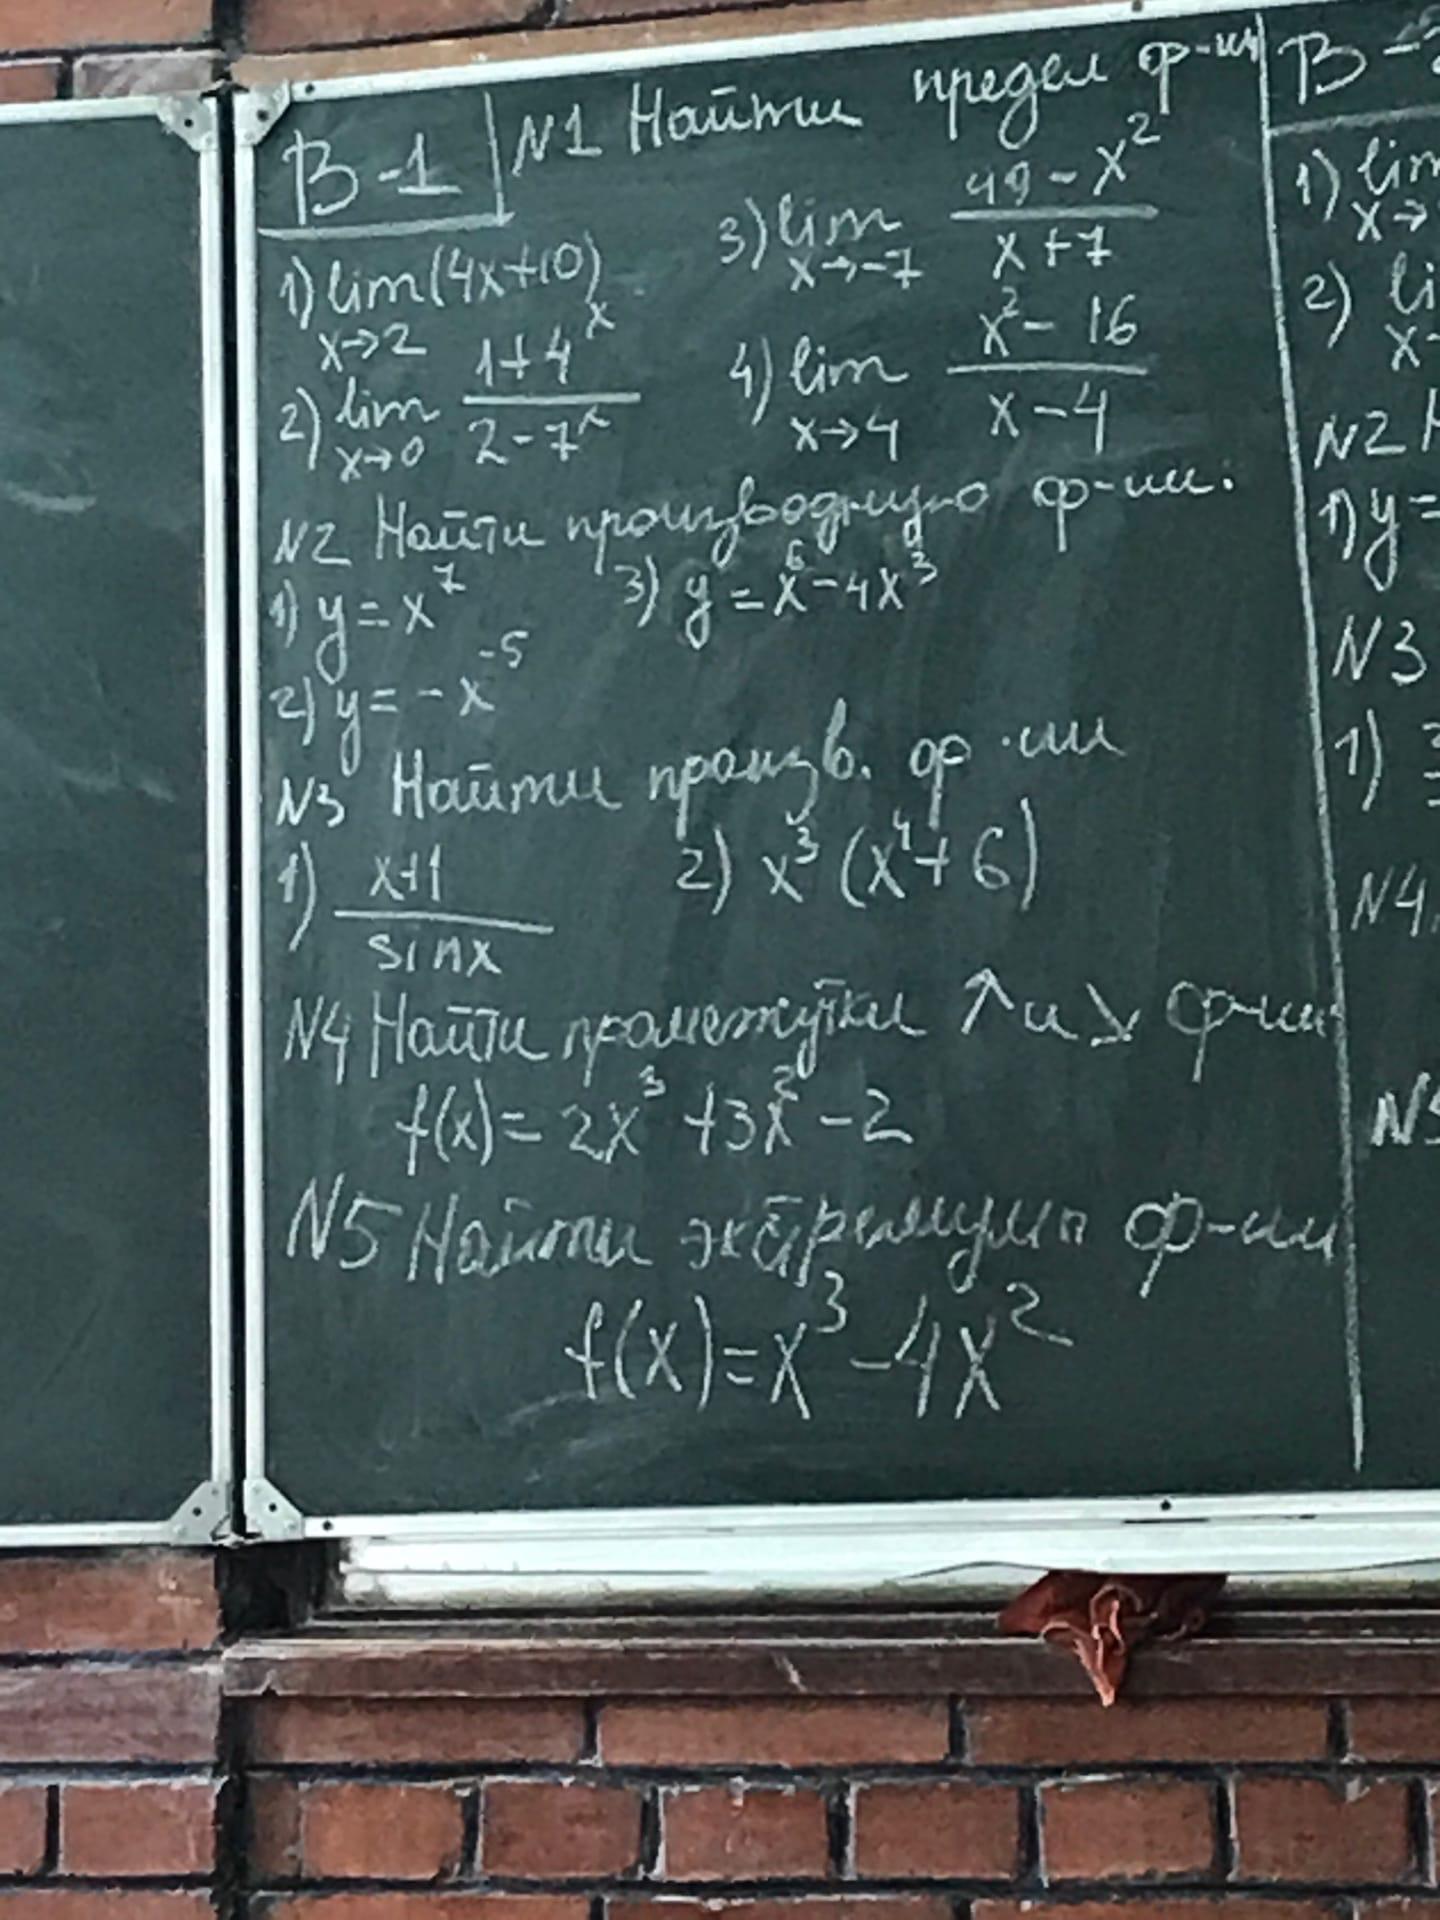 В-1
N1 Найти предел ф-ии
1) lim (4x+10)
x→2
2) lim (1+4^x)/(2-7^x)
x→0
3) lim (49-x²)/(x+7)
x→-7
4) lim (x²-16)/(x-4)
x→4
N2 Найти производную ф-ии.
1) y = x⁷
2) y = -x⁻⁵
3) y = x⁶-4x³
N3 Найти произв. ф-ии
1) (x+1)/(sinx)
2) x³(x⁴+6)
N4 Найти промежутки ↗и↘ ф-ии
f(x)= 2x³+3x²-2
N5 Найти экстремумы ф-ии
f(x)=x³-4x²
В-2
1) lim
x→
2) li
x-
N2 Н
1) y=
N3
1)
N4.
N5